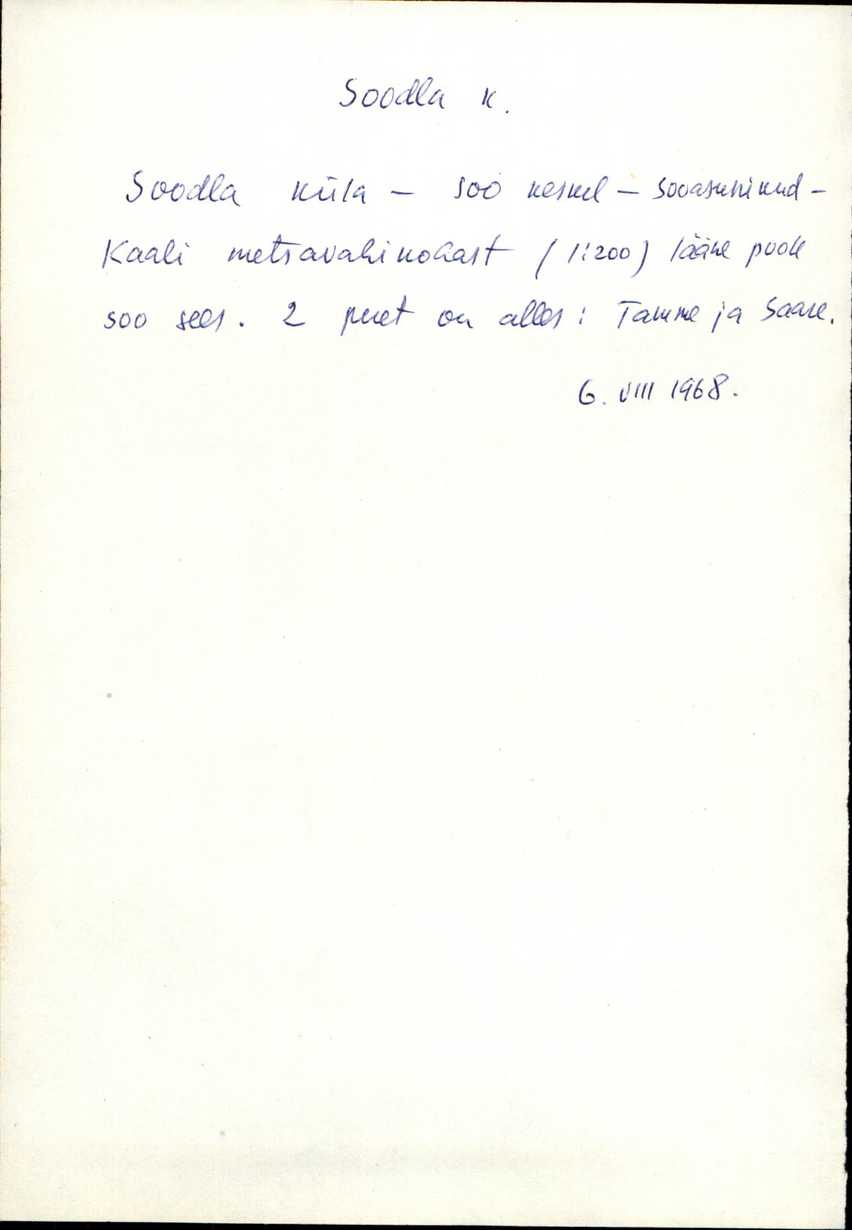 Soodla k.
Soodla küla – soo keskel – sooasunikud –
Kaali metsavahi kohast (1:200) lääne poole
soo sees. 2 peret on alles: Tamme ja Saare.
6. VIII 1968.